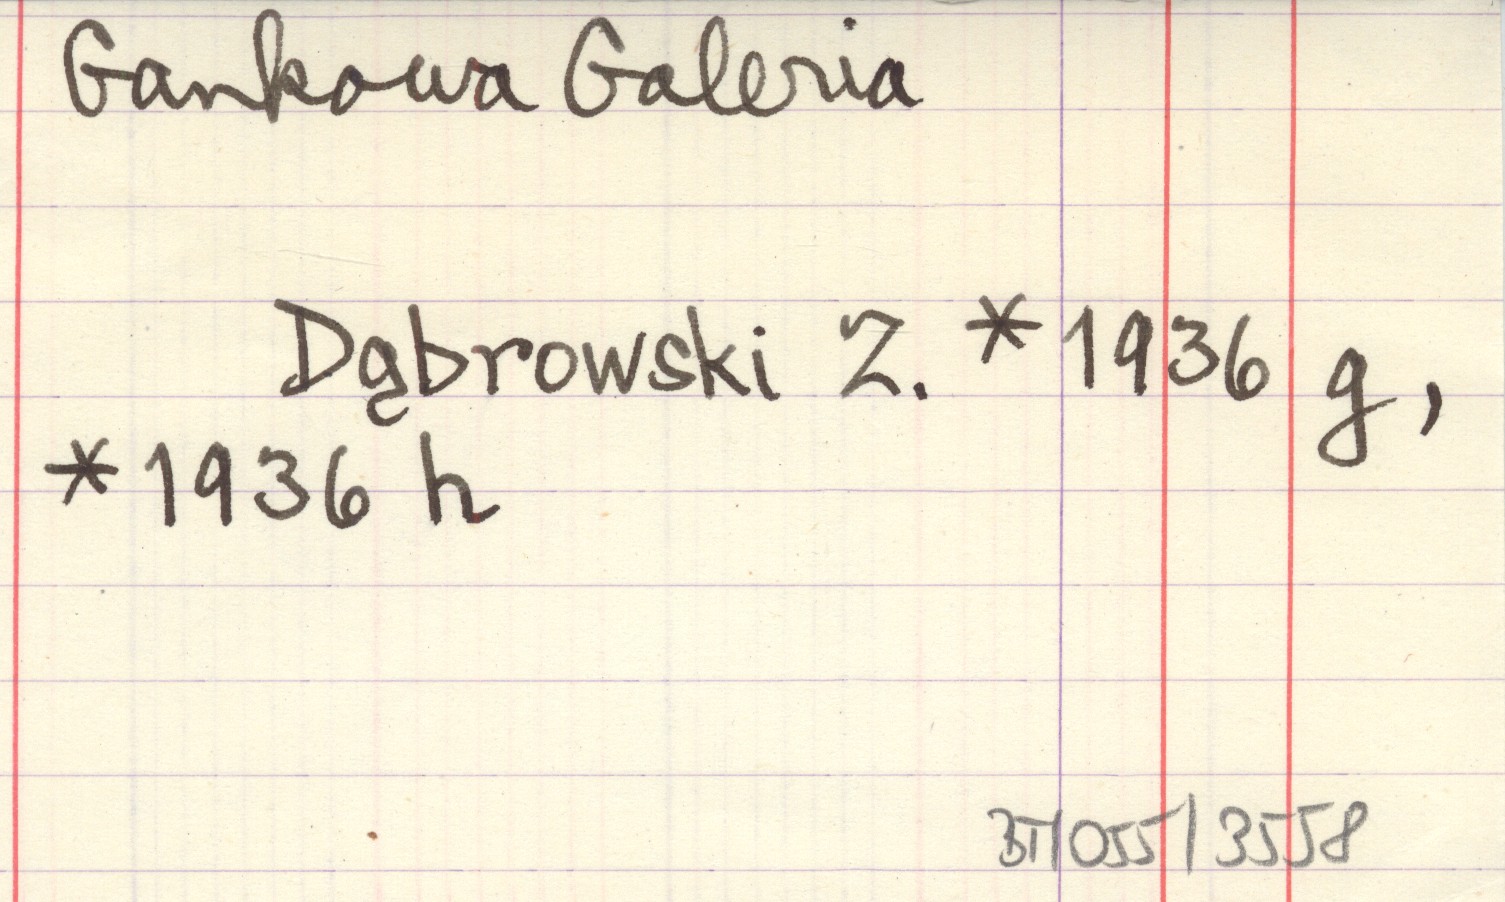 Gankowa Galeria
Dąbrowski Z. *1936 g,
*1936 h
BT/055/3558